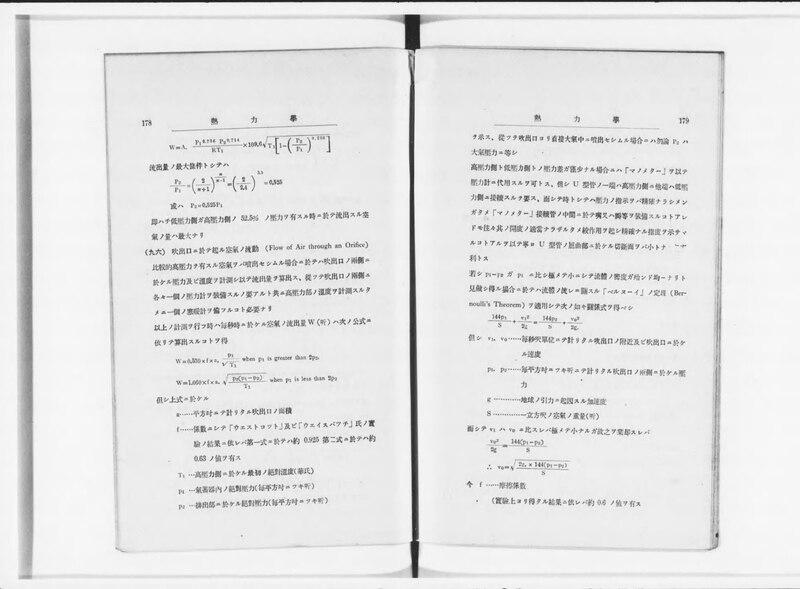 178
熱力學
W=A. p₁^0.786 p₂^0.714 / RT₁ ×109.6√T₁[1-(p₂/p₁)^0.286]
流出量ノ最大條件トシテハ
P₂/P₁=(2/n+1)^n/n-1=(2/2.4)^3.5=0,525
或ハ P₂=0,525P₁
即ハチ低壓力側ガ高壓力側ノ 52.5% ノ壓力ヲ有スル時ニ於テ流出スル空
氣ノ量ハ最大ナリ
(九六) 吹出口ニ於テ起ル空氣ノ流動 (Flow of Air through an Orifice)
比較的高壓力ヲ有スル空氣ヲバ噴出セシムル場合ニ於テハ吹出口ノ兩側ニ
於ケル壓力及ビ溫度ヲ計測シ以テ流出量ヲ算出ス、從ツテ吹出口ノ兩側ニ
各々一個ノ壓力計ヲ裝備スルノ要アルト共ニ高壓力部ノ溫度ヲ計測スルタ
メニ一個ノ寒暖計ヲ備フルコト必要ナリ
以上ノ計測ヲ行フ時ハ每秒時ニ於ケル空氣ノ流出量 W (听) ハ次ノ公式ニ
依リテ算出スルコトヲ得
W=0.530×f×a. p₁/√T₁ when p₁ is greater than 2p₂.
W=1.060×f×a. √p₂(p₁-p₂)/T₁ when p₁ is less than 2p₂
但シ上式ニ於ケル
a……平方吋ニテ計リタル吹出口ノ面積
f……係數ニシテ「ウエストコット」及ビ「ウエイスバツチ」氏ノ實
驗ノ結果ニ依レバ第一式ニ於テハ約 0.925 第二式ニ於テハ約
0.63 ノ値ヲ有ス
T₁ …高壓力側ニ於ケル最初ノ絕對溫度(華氏)
p₁ …氣蓄器內ノ絕對壓力(每平方吋ニツキ听)
p₂ …排出部ニ於ケル絕對壓力(每平方吋ニツキ听)
熱力學
179
ヲ示ス、從ツテ吹出口ヨリ直接大氣中ニ噴出セシムル場合ニハ勿論 p₂ ハ
大氣壓力ニ等シ
高壓力側ト低壓力側トノ壓力差ガ僅少ナル場合ニハ「マノメター」ヲ以テ
壓力計ニ代用スルヲ可トス、但シ U 型管ノ一端ハ高壓力側ニ他端ハ低壓
力側ニ接續スルヲ要ス、而シテ時トシテハ壓力ノ指示ヲバ精確ナラシメン
ガタメ「マノメター」接續管ノ中間ニ於テ嘴又ハ瓣等ヲ裝備スルコトアレ
ドモ往々其ノ開度ノ適當ナラザルタメ絞作用ヲ起シ精確ナル指度ヲ示サヾ
ルコトアルヲ以テ寧ロ U 型管ノ屈曲部ニ於ケル切斷面ヲバ小ト
利トス
若シ p₁-p₂ ガ p₁ ニ比シ極メテ小ニシテ流體ノ密度ガ殆ンド均一ナリト
見做シ得ル場合ニ於テハ流體ノ流レニ關スル「ベルヌーイ」ノ定理 (Ber-
noulli's Theorem) ヲ適用シテ次ノ如キ關係式ヲ得ベシ
144p₁/S + v₁²/2g = 144p₂/S + v₀²/2g.
但シ v₁, v₀……每秒呎單位ニテ計リタル吹出口ノ附近及ビ吹出口ニ於ケ
ル速度
p₁, p₂……每平方吋ニツキ听ニテ計リタル吹出口ノ兩側ニ於ケル壓
力
g ……………地球ノ引力ニ起因スル加速度
S ……………一立方呎ノ空氣ノ重量(听)
而シテ v₁ ハ v₀ ニ比スレバ極メテ小ナルガ故之ヲ棄却スレバ
v₀²/2g = 144(p₁-p₂)/S
∴ v₀=√2g. × 144(p₁-p₂)/S
今 f ……摩擦係數
(實驗上ヨリ得タル結果ニ依レバ約 0.6 ノ値ヲ有ス